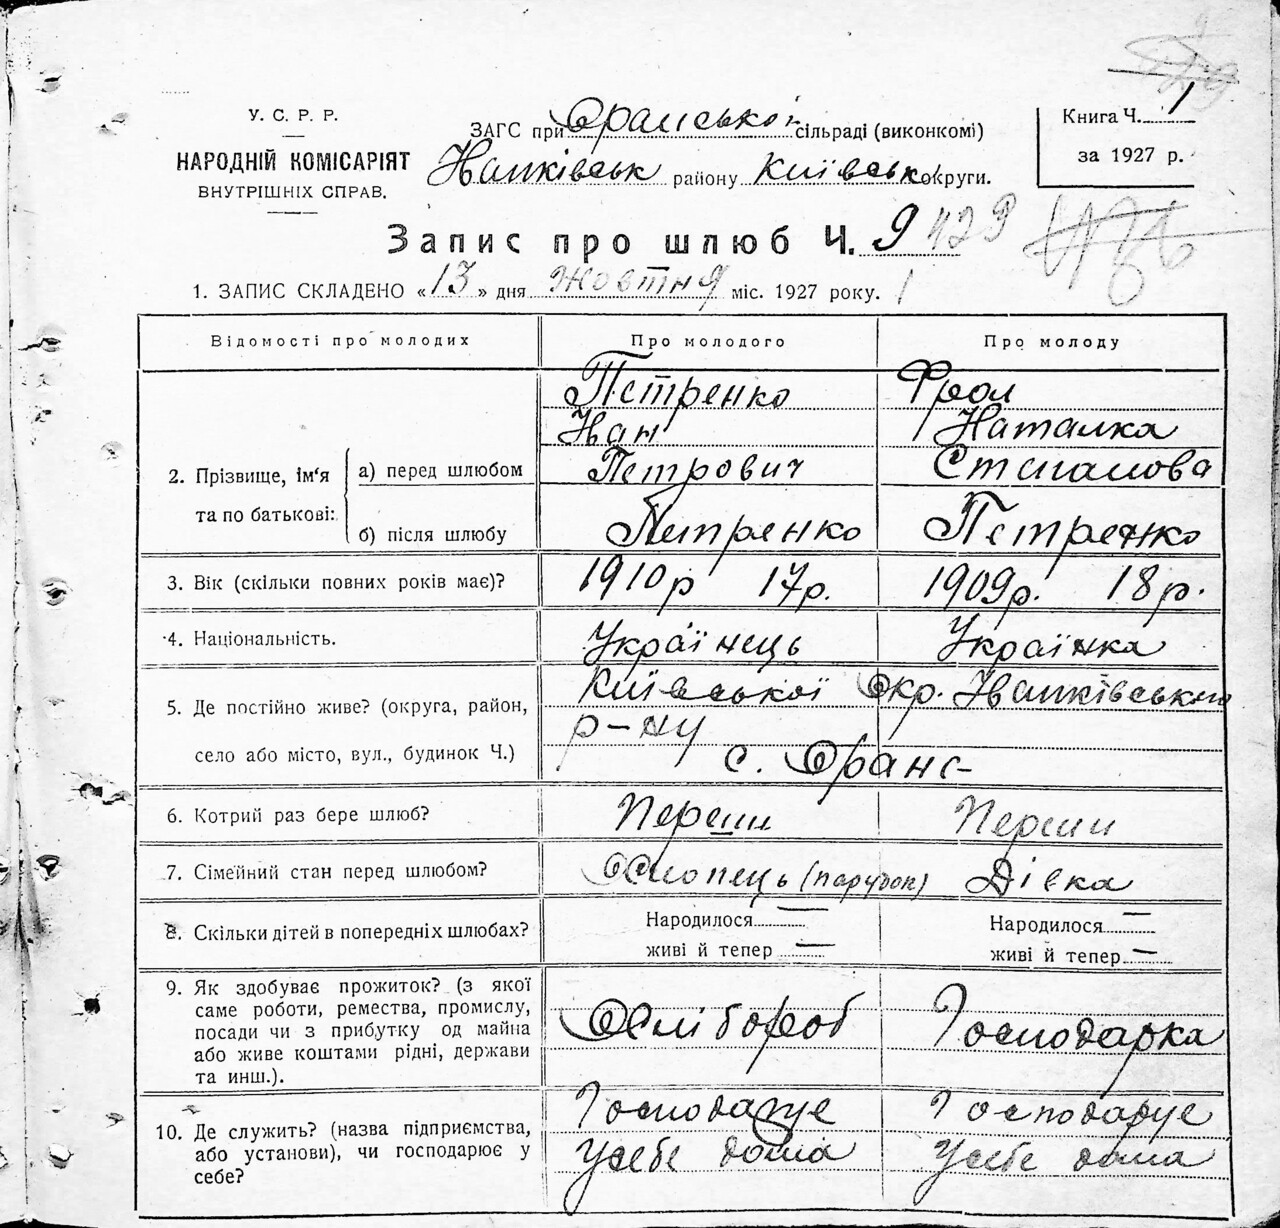 У. С. Р. Р.
НАРОДНІЙ КОМІСАРІЯТ
ВНУТРІШНІХ СПРАВ.
ЗАГС при Оранській сільраді (виконкомі)
Іванківськ району Київськ округи.
Книга Ч. 1
за 1927 р.
Запис про шлюб Ч. 9 429
1. ЗАПИС СКЛАДЕНО «13» дня жовтня міс. 1927 року.
Відомості про молодих Про молодого Про молоду
2. Прізвище, ім'я та по батькові:
а) перед шлюбом
Петренко Фрол
Іван Наталка
Петрович Степанова
б) після шлюбу Петренко Петренко
3. Вік (скільки повних років має)? 1910р 17р. 1909р. 18р.
4. Національність. Українець Українка
5. Де постійно живе? (округа, район, село або місто, вул., будинок Ч.)
Київської Окр. Іванківського
р-ну
с. Оране
6. Котрий раз бере шлюб? Перши Перши
7. Сімейний стан перед шлюбом? Хлопець (парубок) Дівка
8. Скільки дітей в попередніх шлюбах? Народилося — Народилося —
живі й тепер — живі й тепер —
9. Як здобуває прожиток? (з якої
саме роботи, ремества, промислу,
посади чи з прибутку од майна
або живе коштами рідні, держави
та инш.).
Хлібороб Господарка
10. Де служить? (назва підприємства,
або установи), чи господарює у
себе?
Господарує Господарує
у себе дома у себе дома